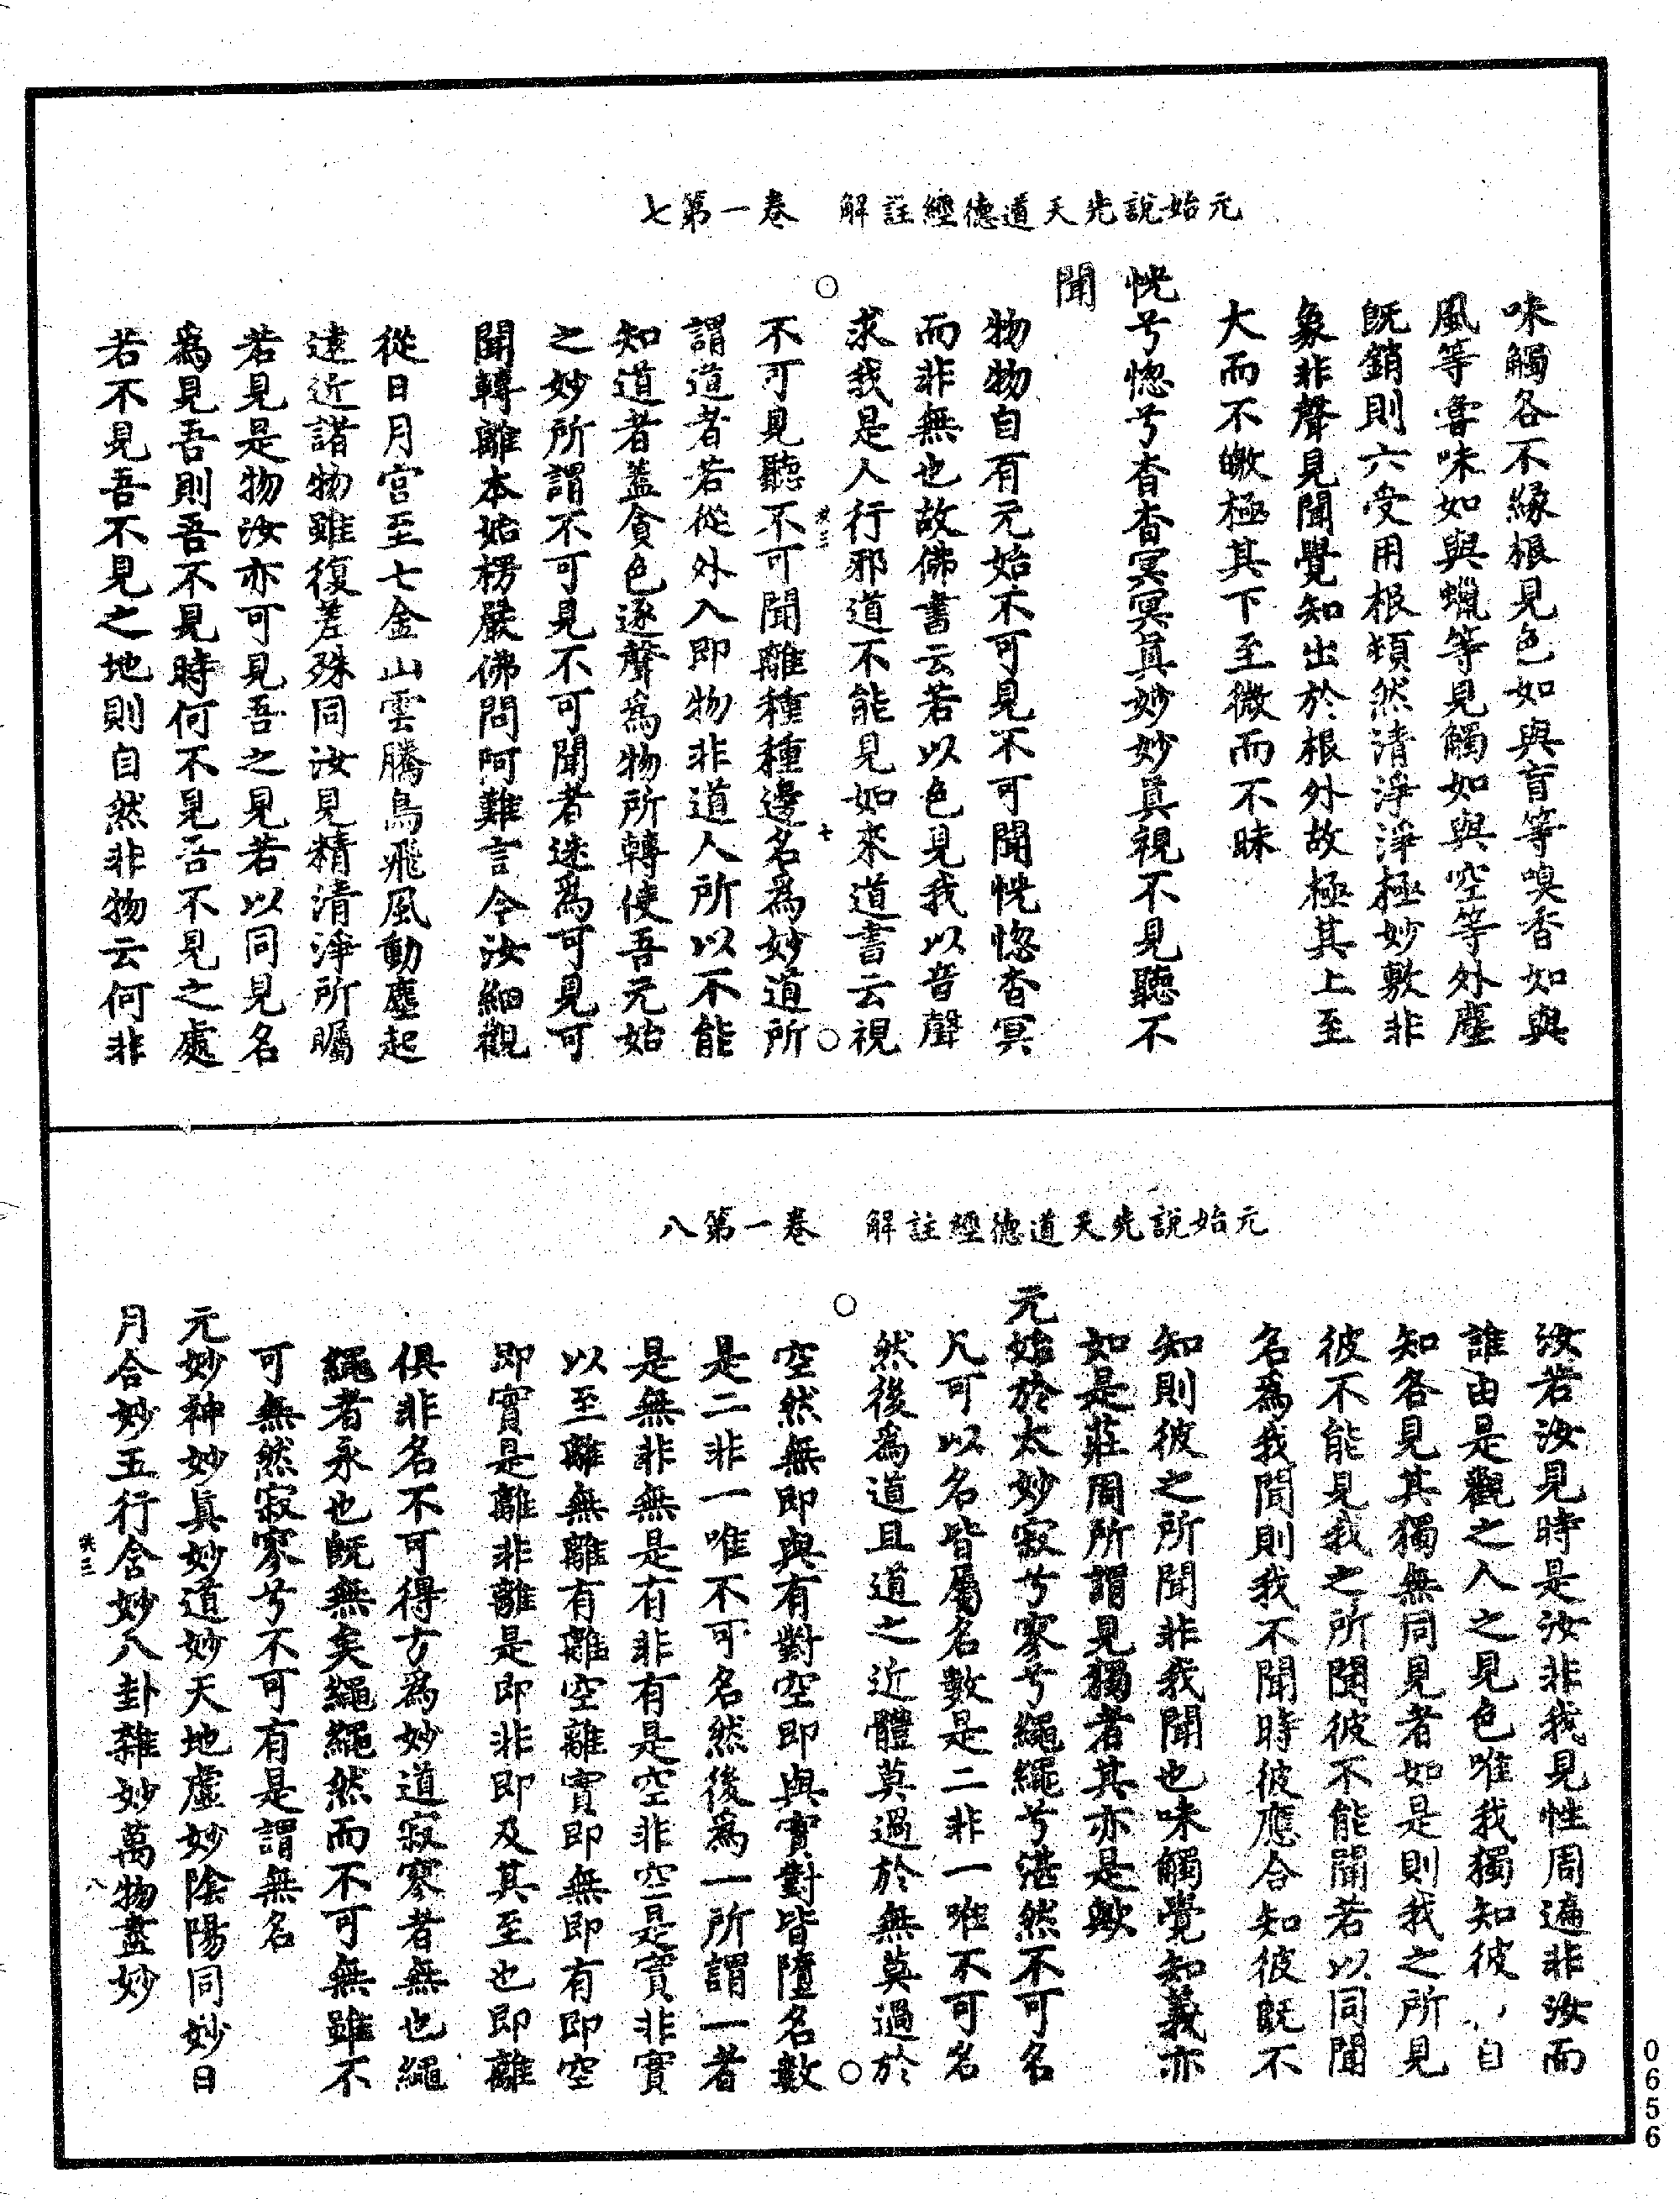 元始說先天道德經註解　卷一第七
味觸各不緣根見色如與盲等嗅香如與
風等嘗味如與蠟等見觸如與空等外塵
既銷則六受用根頹然清淨淨極妙敷非
象非聲見聞覺知出於根外故極其上至
大而不皦極其下至微而不昧
恍兮惚兮杳杳冥冥真妙妙真視不見聽不
聞
物物自有元始不可見不可聞恍惚杳冥
而非無也故佛書云若以色見我以音聲
求我是人行邪道不能見如來道書云視
不可見聽不可聞離種種邊名為妙道所
謂道者若從外入即物非道人所以不能
知道者蓋貪色逐聲為物所轉使吾元始
之妙所謂不可見不可聞者迷為可見可
聞轉離本始楞嚴佛問阿難言今汝細觀
從日月宮至七金山雲騰鳥飛風動塵起
遠近諸物雖復差殊同汝見精清淨所矚
若見是物汝亦可見吾之見若以同見名
為見吾則吾不見時何不見吾不見之處
若不見吾不見之地則自然非物云何非
元始說先天道德經註解　卷一第八
汝若汝見時是汝非我見性周遍非汝而
誰由是觀之人之見色唯我獨知彼自
知各見其獨無同見者如是則我之所見
彼不能見我之所聞彼不能聞若以同聞
名為我聞則我不聞時彼應合知彼既不
知則彼之所聞非我聞也味觸覺知義亦
如是莊周所謂見獨者其亦是歟
元始於太妙寂兮寥兮繩繩兮湛然不可名
凡可以名皆屬名數是二非一唯不可名
然後為道且道之近體莫過於無莫過於
空然無即與有對空即與實對皆墮名數
是二非一唯不可名然後為一所謂一者
是無非無是有非有是空非空是實非實
以至離無離有離空離實即無即有即空
即實是離非離是即非即及其至也即離
俱非名不可得方為妙道寂寥者無也繩
繩者永也既無矣繩繩然而不可無雖不
可無然寂寥兮不可有是謂無名
元妙神妙真妙道妙天地虛妙陰陽同妙日
月合妙五行含妙八卦雜妙萬物盡妙
0656